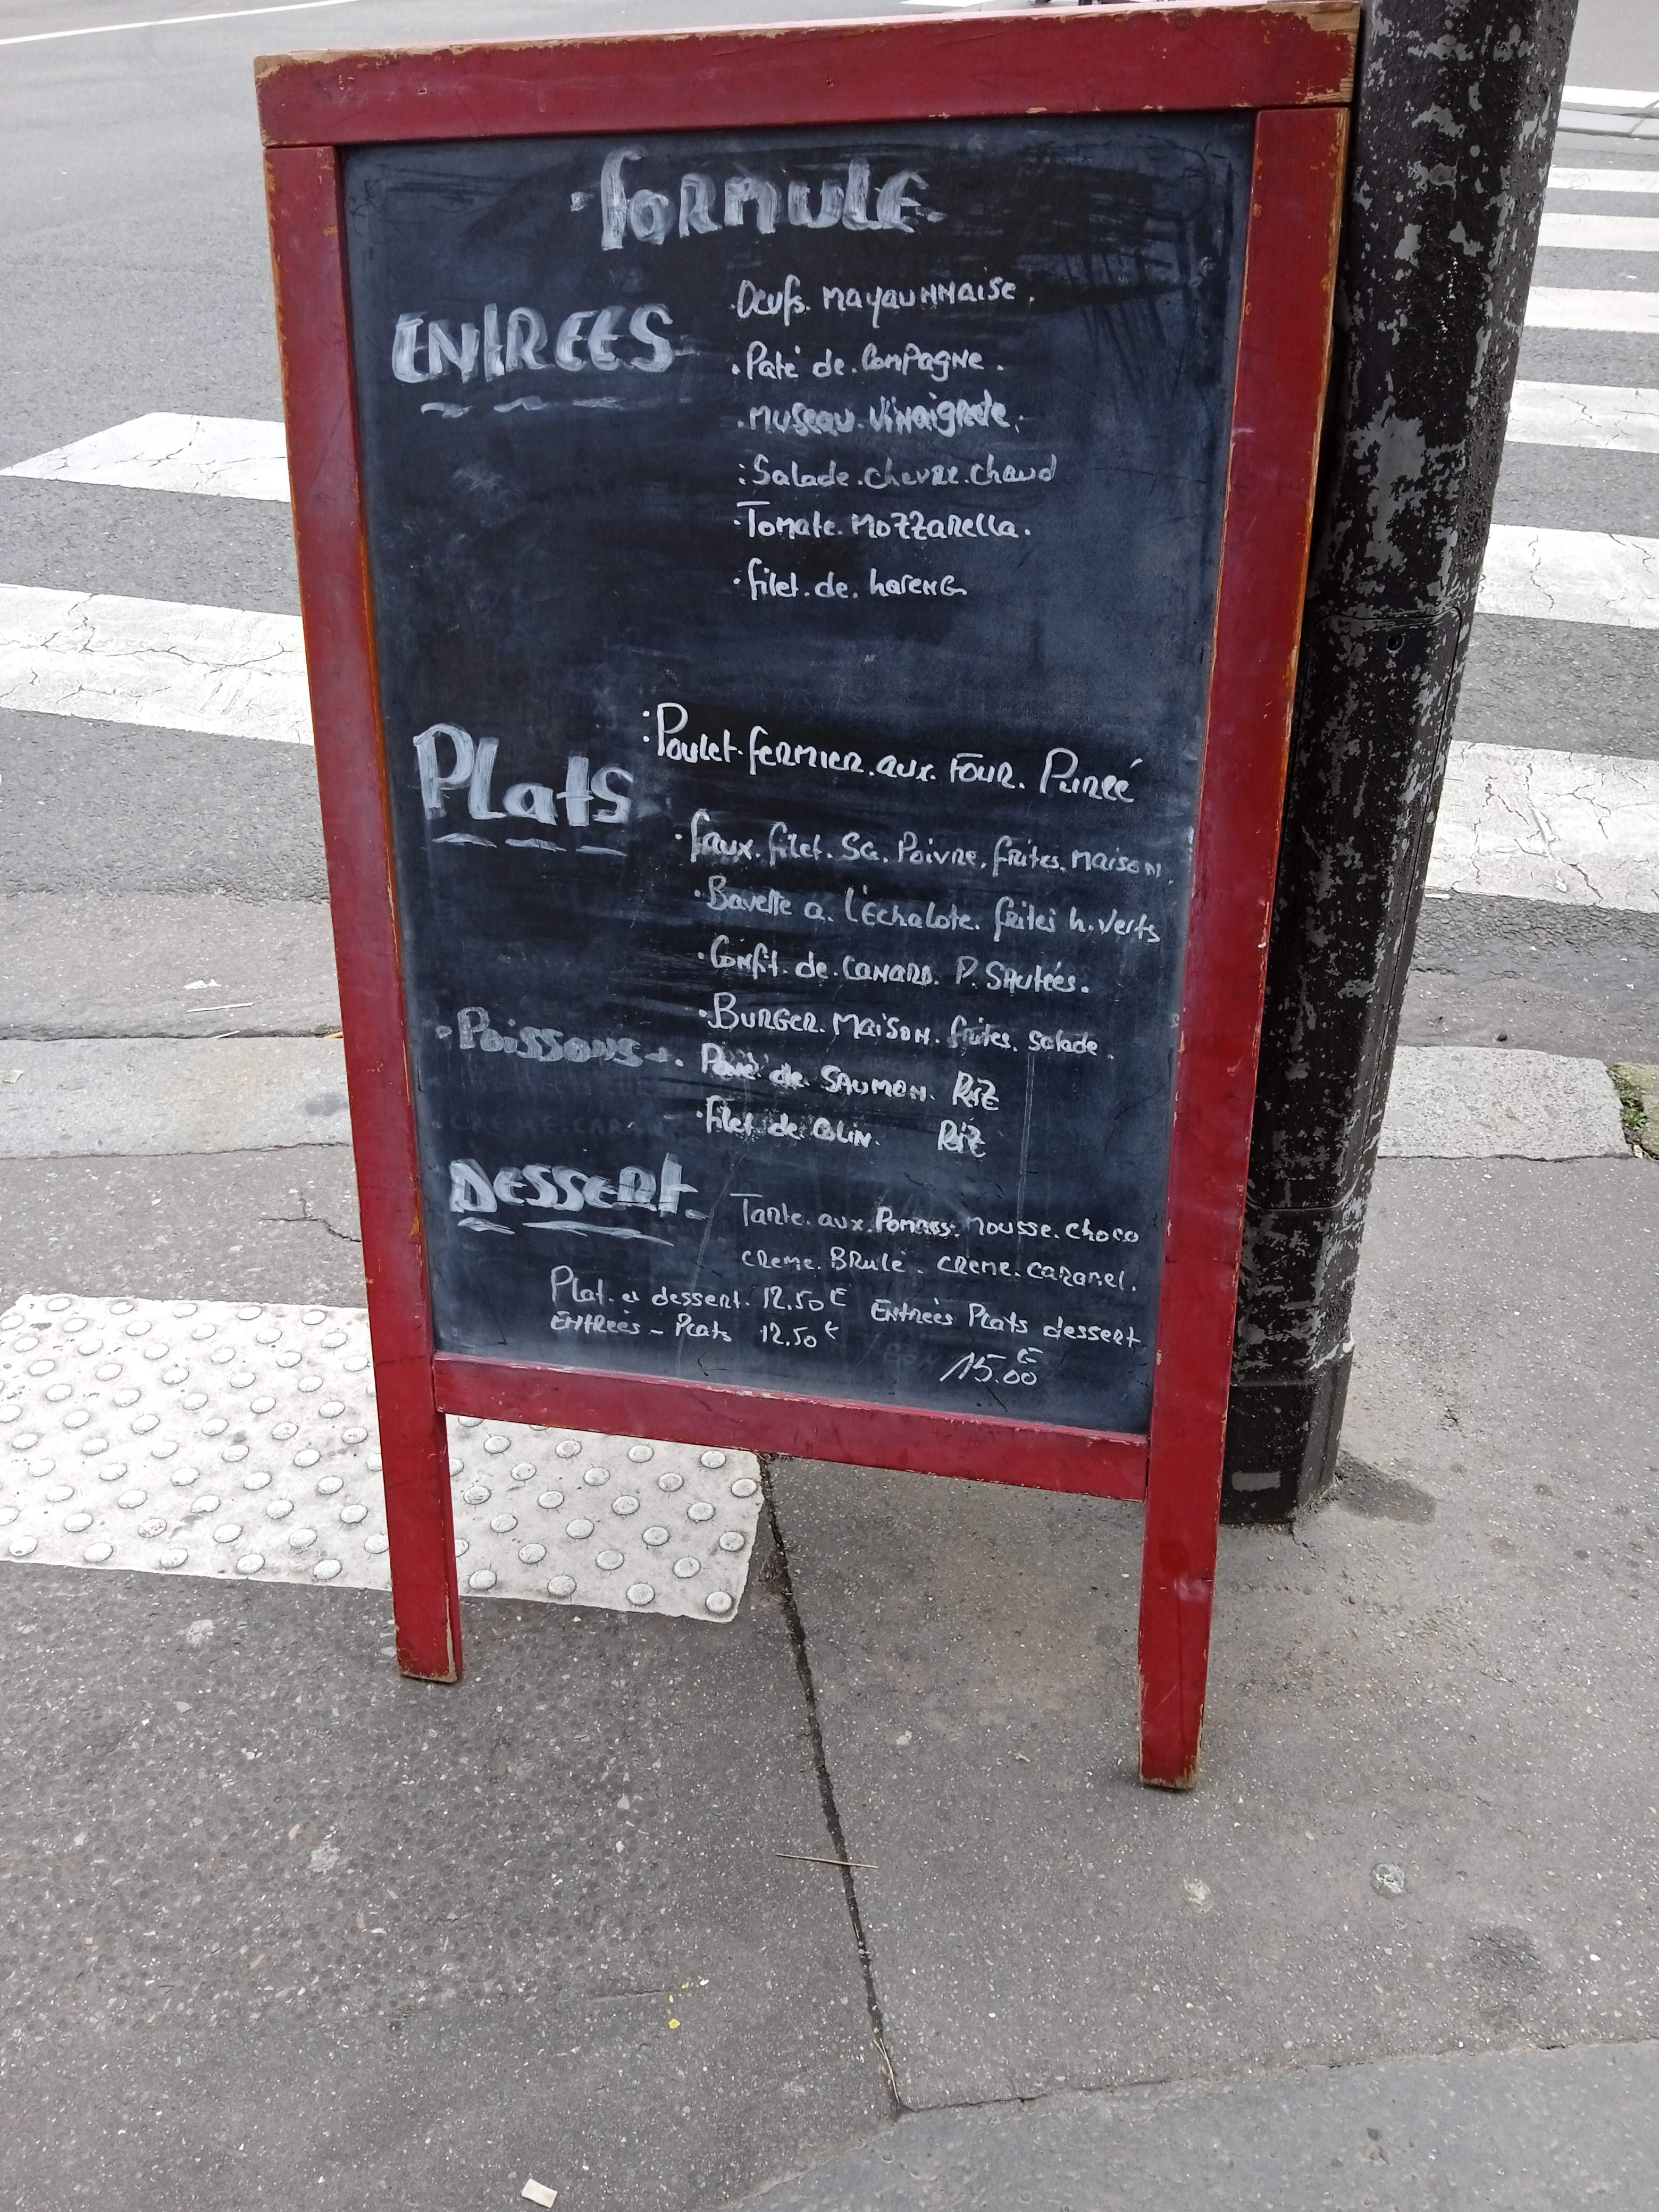 FORMULE
ENTREES
Oeufs. Mayaunnaise.
.Paté de. Compagne.
.Museau. Vinaigrete.
:Salade. chevre. chaud
.Tomate. Mozzarella.
.filet. de. hareng
Plats
:Poulet. fermier. aux. Four. Pureé
.faux. filet. Sc. Poivre. frites. maison.
.Bavette a. l'Echalote. frites h. verts
.Confit. de. Canard. P. Sautées.
.Burger. Maison. frites. salade.
.Poissons
Pavé de Saumon. Riz
.Filet de Colin. Riz
Dessert.
Tarte. aux. Pommes. Mousse. choco
creme. Brulé. creme. caramel.
Plat. et dessert. 12.50€
Entreés - Plats 12.50€
Entreés Plats dessert
15.00€